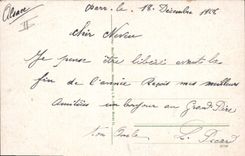 le 18 Décembre 1926
Cher Neveu
Je pense être libéré avant la
fin de l'année Reçois mes meilleurs
Amitiés un bonjour au Grand Père
ton Oncle L. Picard